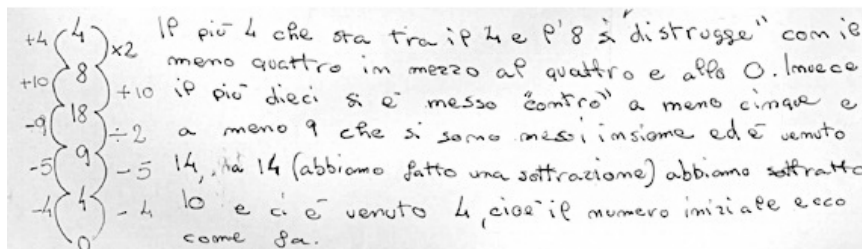 +4 4 ×2 Il più 4 che sta tra il 4 e l'8 si "distrugge" con il
8 meno quattro in mezzo al quattro e allo 0. Invece
+10 +10 il più dieci si è messo "contro" a meno cinque e
-9 18 ÷2 a meno 9 che si sono messi insieme ed è venuto
-5 9 -5 14, a 14 (abbiamo fatto una sottrazione) abbiamo sottratto
-4 4 -4 10 e ci è venuto 4, cioè il numero iniziale ecco
0 come fa.